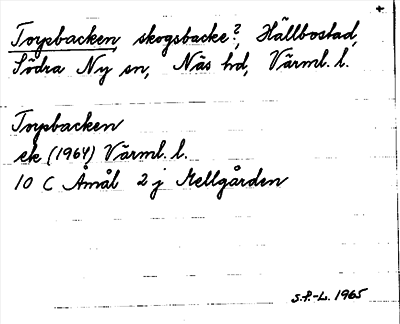 Torpbacken skogsbacke?, Hällbostad,
Södra Ny sn, Näs hd, Värml. l.
Torpbacken
ek (1964) Värml. l.
10 C Åmål 2 j Mellgården
S.P.-L. 1965